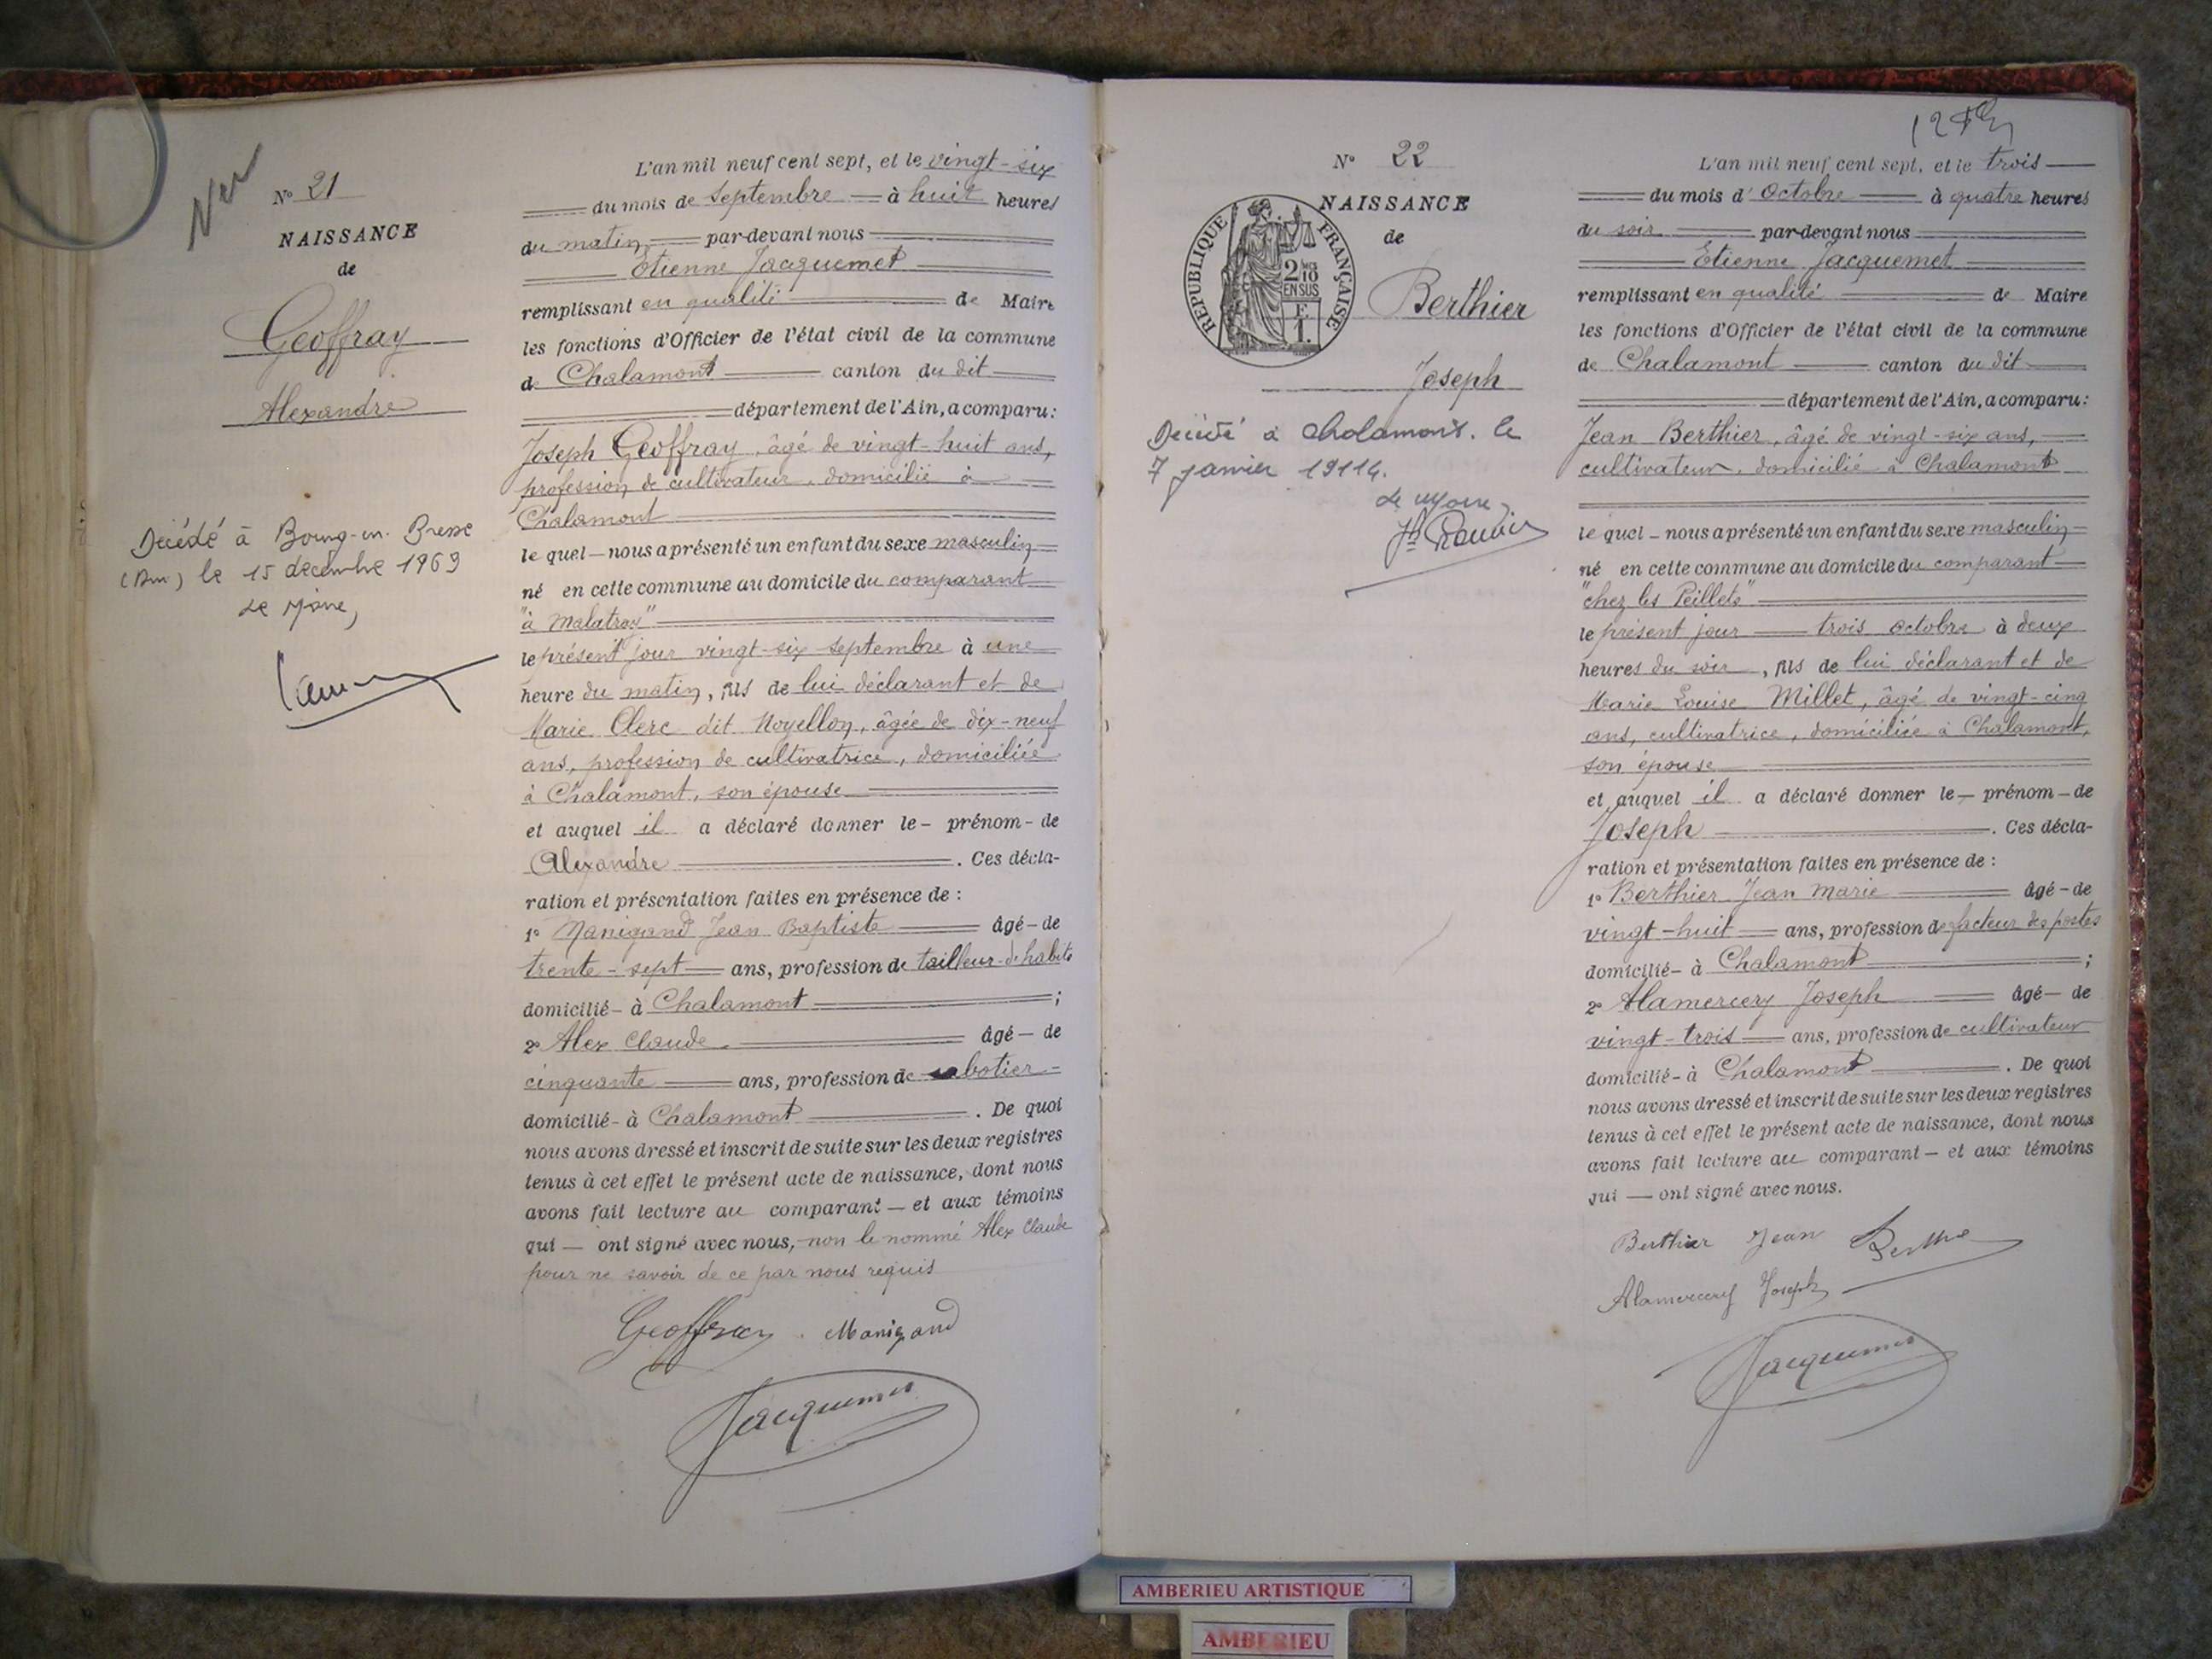 Ner
N° 21
NAISSANCE
de
Geoffray
Alexandre
Décédé à Bourg-en-Bresse
(Ain) le 15 décembre 1969
Le Maire,
L'an mil neuf cent sept, et le vingt-six
du mois de Septembre à huit heures
du matin par-devant nous
Etienne Jacquemet
remplissant en qualité de Maire
les fonctions d'Officier de l'état civil de la commune
de Chalamont canton du dit
département de l'Ain, a comparu:
Joseph Geoffray, âgé de vingt-huit ans,
profession de cultivateur, domicilié à
Chalamont
le quel – nous a présenté un enfant du sexe masculin
né en cette commune au domicile du comparant
"à Malatray"
le présent jour vingt-six septembre à une
heure du matin, fils de lui déclarant et de
Marie Clerc dit Noyellon, âgée de dix-neuf
ans, profession de cultivatrice, domiciliée
à Chalamont, son épouse
et auquel il a déclaré donner le – prénom – de
Alexandre . Ces décla-
ration et présentation faites en présence de :
1° Manigand Jean Baptiste âgé – de
trente-sept ans, profession de tailleur d'habits
domicilié – à Chalamont ;
2° Alex Claude âgé – de
cinquante ans, profession de sabotier
domicilié – à Chalamont . De quoi
nous avons dressé et inscrit de suite sur les deux registres
tenus à cet effet le présent acte de naissance, dont nous
avons fait lecture au comparant – et aux témoins
qui — ont signé avec nous, non le nommé Alex Claude
pour ne savoir de ce par nous requis
Geoffray Manigand
Jacquemet
N° 22
NAISSANCE
de
RÉPUBLIQUE FRANÇAISE
2/10
EN SUS
F
1.
Berthier
Joseph
Décédé à Chalamont. le
7 janvier 19114.
Le Maire
L'an mil neuf cent sept, et le trois
du mois d'Octobre à quatre heures
du soir par-devant nous
Etienne Jacquemet
remplissant en qualité de Maire
les fonctions d'Officier de l'état civil de la commune
de Chalamont canton du dit
département de l'Ain, a comparu:
Jean Berthier, âgé de vingt-six ans,
cultivateur, domicilié à Chalamont
le quel – nous a présenté un enfant du sexe masculin
né en cette commune au domicile du comparant
"chez les Peillets"
le présent jour trois octobre à deux
heures du soir, fils de lui déclarant et de
Marie Louise Millet, âgé de vingt-cinq
ans, cultivatrice, domiciliée à Chalamont,
son épouse
et auquel il a déclaré donner le – prénom – de
Joseph . Ces décla-
ration et présentation faites en présence de :
1° Berthier Jean Marie âgé – de
vingt-huit ans, profession de facteur des postes
domicilié – à Chalamont ;
2° Alamercery Joseph âgé – de
vingt-trois ans, profession de cultivateur
domicilié – à Chalamont . De quoi
nous avons dressé et inscrit de suite sur les deux registres
tenus à cet effet le présent acte de naissance, dont nous
avons fait lecture au comparant – et aux témoins
qui — ont signé avec nous.
Berthier Jean Berthie
Alamercery Joseph
Jacquemet
AMBERIEU ARTISTIQUE
AMBERIEU